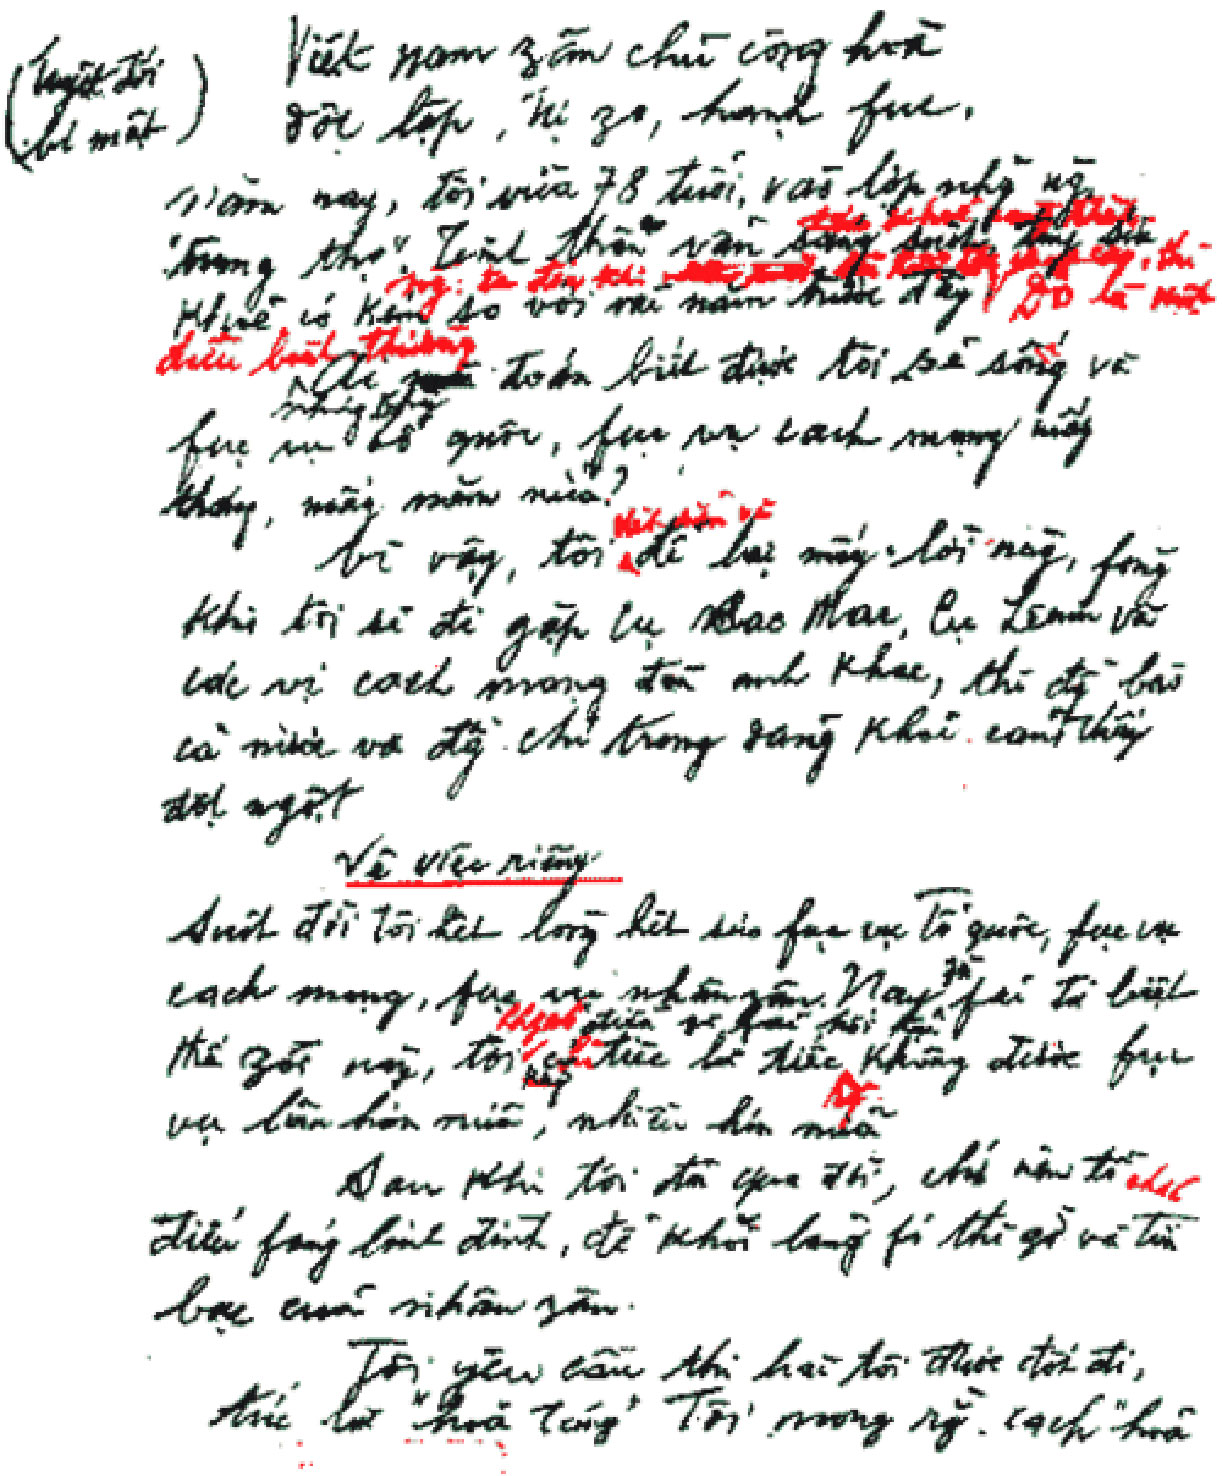 (tuyệt đối
bí mật)
Việt nam zân chủ cộng hoà
độc lập, tự zo, hạnh fúc.
Năm nay, tôi vừa 78 tuổi, vào lớp những ng
"trung thọ". Tinh thần vẫn sáng suốt, tuy sức
khoẻ có kém so với vài năm trước đây
ng. ta đến khi
thì
Đó là một
điều bình thường
Ai mà đoán biết được tôi sẽ sống và
fục vụ tổ quốc, fục vụ cách mạng mấy
tháng, mấy năm nữa?
Vì vậy, tôi để lại mấy lời này, fòng
khi tôi sẽ đi gặp Cụ Các Mác, Cụ Lênin và
các vị cách mạng đàn anh khác, thì đồng bào
cả nước và đồng chí trong đảng khỏi cảm thấy
đột ngột
Về việc riêng
Suốt đời tôi hết lòng hết sức fục vụ Tổ quốc, fục vụ
cách mạng, fục vụ nhân zân. Nay zù fải từ biệt
thế zới này, tôi
điều gì fải hối hận
chỉ tiếc là tiếc không được fục
vụ lâu hơn nữa, nhiều hơn nữa
Sau khi tôi đã qua đời, chớ nên tổ chức
điếu fúng linh đình, để khỏi lãng fí thì giờ và tiền
bạc của nhân zân.
Tôi yêu cầu thi hài tôi được đốt đi,
tức là "hoả táng". Tôi mong rằng cách "hoả